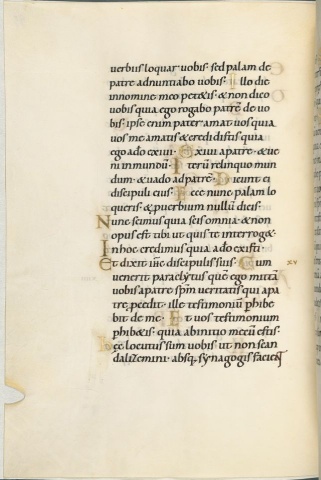 uerbiis loquar uobis· sed palam de
patre adnuntiabo uobis· Illo die
in nomine meo petetis· & non dico
uobis quia ego rogabo patrē de uo
bis· ipse enim pater amat uos quia
uos me amatis & credidistis quia
ego a dō exiui· Exiui a patre· & ue
ni in mundū· Iterū relinquo mun
dum· & uado ad patrē· Dicunt ei
discipuli eius· Ecce nunc palam lo
queris· & puerbium nullū dicis·
Nunc scimus quia scis omnia· & non
opus est tibi ut quis te interroget·
In hoc credimus quia a dō existi·
Et dixit ihc discipulis suis· Cum xv
uenerit paraclytus quē ego mittā
uobis a patre spm ueritatis qui a pa
tre pcedit· ille testimoniū phibe
bit de me· Et uos testimonium
phibetis· quia ab initio mecū estis·
ec locutus sum uobis ut non scan
dalizemini· absq synagogis facient